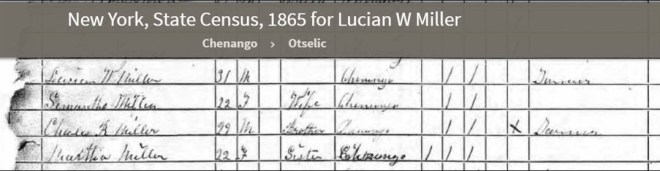 New York, State Census, 1865 for Lucian W Miller
Chenango › Otselic
Lucian W. Miller 31 M Chenango 1 1
Samantha Miller 22 F Wife Chenango 1 1
Charles R Miller 29 M Brother 1 1 X Farmer
Martha Miller 22 F Sister Chenango 1 1 1